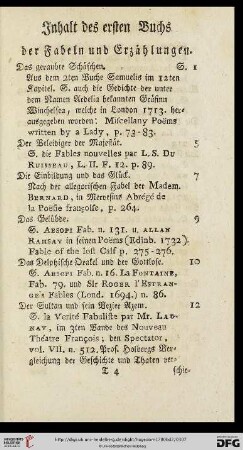 Inhalt des ersten Buchs
der Fabeln und Erzählungen.
Das geraubte Schäfchen. S. 1
Aus dem 2ten Buche Samuelis im 12ten
Kapitel. S. auch die Gedichte der unter
dem Namen Ardelia bekannten Gräfinn
Winchelsea, welche in London 1713. her-
ausgegeben worden: Miscellany Poëms
written by a Lady, p. 73-83.
Der Beleidiger der Majestät. 5
S. die Fables nouvelles par L. S. DU
RUISSEAU, L. II. F. 12. p. 89.
Die Einbildung und das Glück. 7
Nach der allegorischen Fabel der Madem.
BERNARD, in Mervesins Abrégé de
la Poësie françoise, p. 264.
Das Gelübde. 9
S. AESOPI Fab. n. 131. u. ALLAN
RAMSAY in seinen Poëms (Edinb. 1732).
Fable of the lost Calf p. 275-276.
Das Delphische Orakel und der Gottlose. 10
S. AESOPI Fab. n. 16. LA FONTAINE,
Fab. 79. und Sir ROGER l'ESTRAN-
GE's Fables (Lond. 1694.) n. 86.
Der Sultan und sein Vezier Azem. 12
S. la Verité Fabuliste par Mr. LAU-
NAY, im 3ten Bande des Nouveau
Théatre François; den Spectator,
vol. VII. n. 512. Prof. Holbergs Ver-
gleichung der Geschichte und Thaten ver-
T 4 schie-